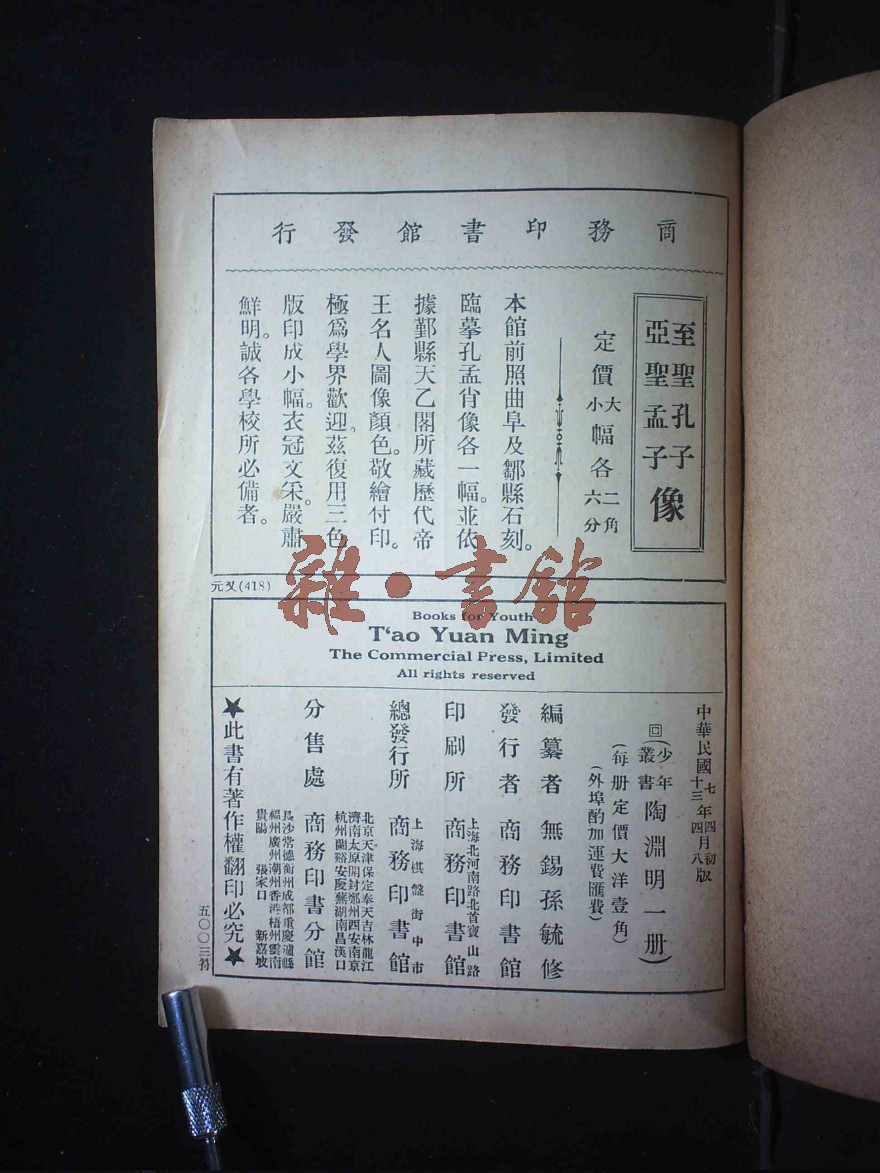 商務印書館發行
至聖孔子
亞聖孟子
像
定價大幅各二角
小六分
本館前照曲阜及鄒縣石刻。
臨摹孔孟肖像各一幅。並依
據鄞縣天乙閣所藏歷代帝
王名人圖像顏色。敬繪付印。
極爲學界歡迎。茲復用三色
版印成小幅。衣冠文采。嚴肅
鮮明。誠各學校所必備者。
元又(418)
雜·書館
Books for Youth
T‘ao Yuan Ming
The Commercial Press, Limited
All rights reserved
中華民國七年四月初版
十三四八
回(少年叢書陶淵明一册)
(每册定價大洋壹角)
(外埠酌加運費匯費)
編纂者 無錫孫毓修
發行者 商務印書館
印刷所 上海北河南路北首寶山路 商務印書館
總發行所 上海棋盤街中市 商務印書館
分售處 商務印書分館
北京天津保定奉天吉林龍江
濟南太原開封鄭州西安南京
杭州蘭谿安慶蕪湖南昌漢口
長沙常德衡州成都重慶瀘縣
福州廣州潮州香港梧州雲南
貴陽 張家口 新嘉坡
★此書有著作權翻印必究★
五〇〇三符